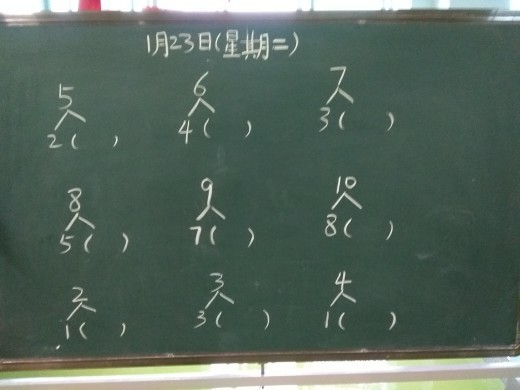 1月23日(星期二)
5 6 7
2( ) 4( ) 3( )
8 9 10
5( ) 7( ) 8( )
2 3 4
1( ) 3( ) 1( )